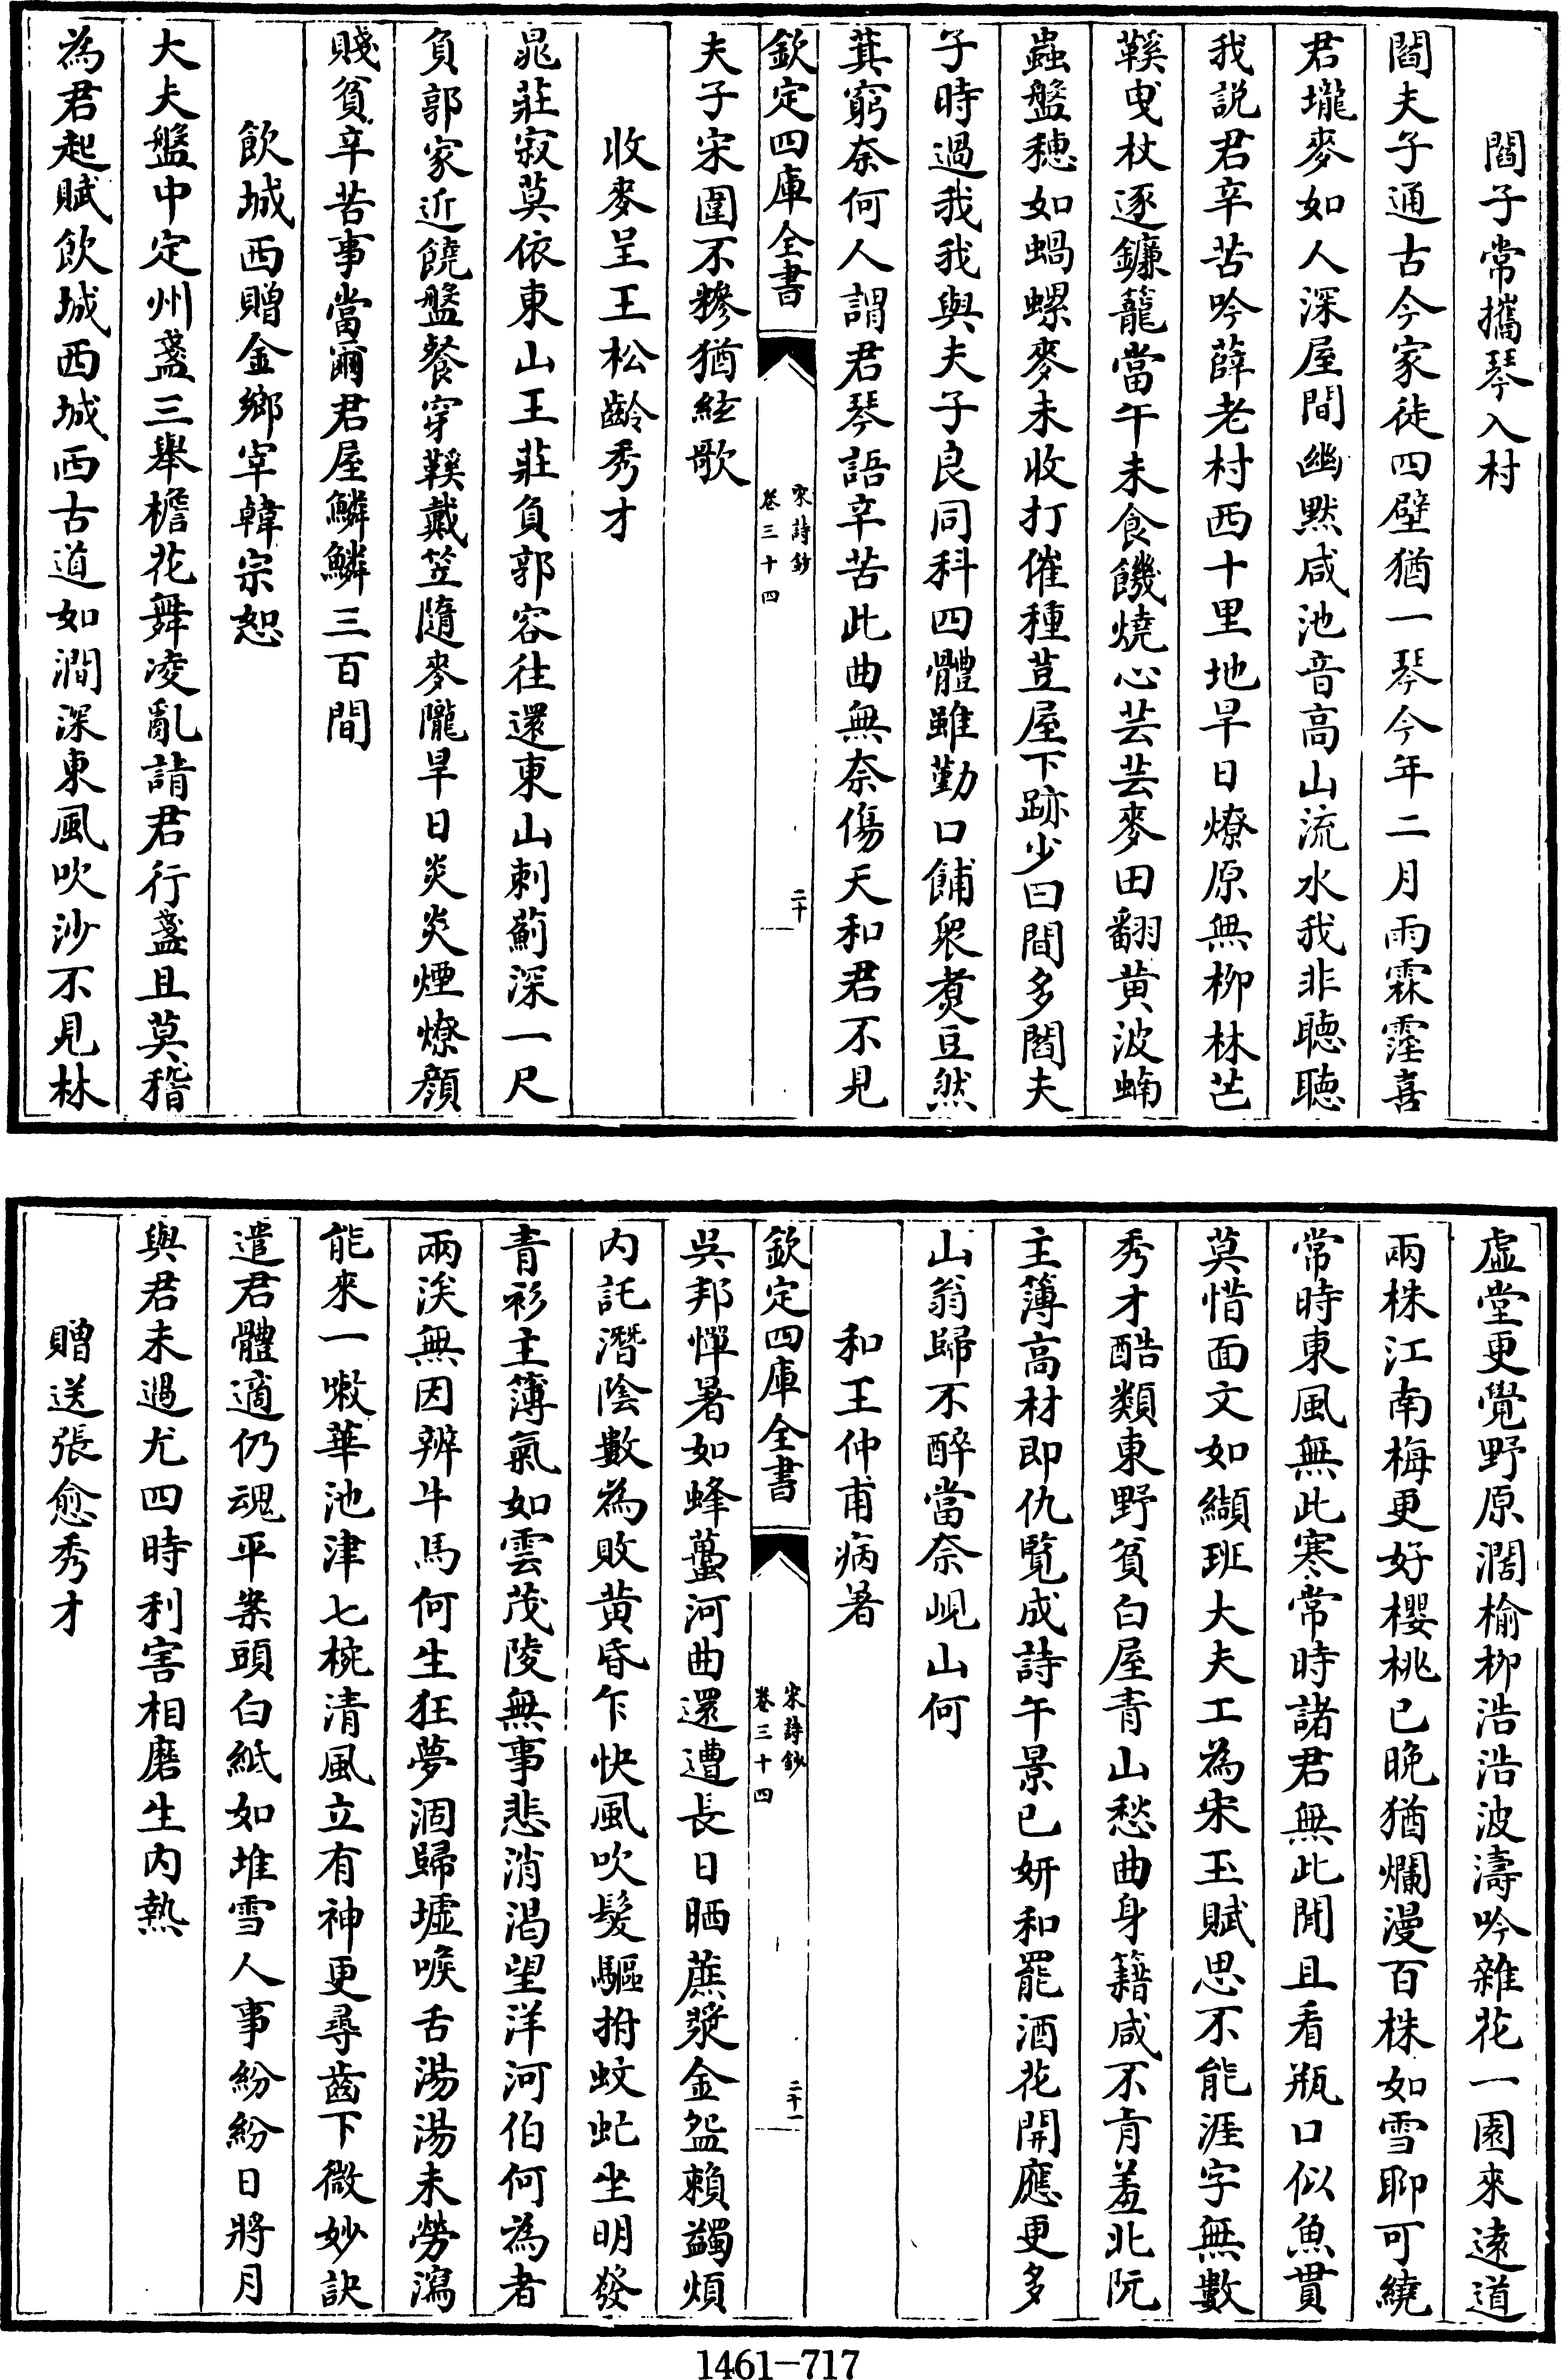 閻子常攜琴入村
閻夫子通古今家徒四壁猶一琴今年二月雨霖霪喜
君壠麥如人深屋間幽默咸池音高山流水我非聽聽
我説君辛苦吟薛老村西十里地旱日燎原無柳林芒
鞵曵杖逐鐮籠當午未食饑燒心芸芸麥田翻黄波蝻
蟲盤穗如蝸螺麥未收打催種荳屋下跡少曰間多閻夫
子時過我我與夫子良同科四體雖勤口餔衆煮豆然
萁窮奈何人謂君琴語辛苦此曲無奈傷天和君不見
欽定四庫全書
宋詩鈔
卷三十四
二十
夫子宋圍不糝猶絃歌
收麥呈王松齡秀才
晁莊寂莫依東山王莊負郭容往還東山刺薊深一尺
負郭家近饒盤餐穿鞵戴笠隨麥隴旱日炎炎煙燎顔
賤貧辛苦事當爾君屋鱗鱗三百間
飲城西贈金鄉宰韓宗恕
大夫盤中定州盞三舉檐花舞凌亂請君行盞且莫稽
為君起賦飲城西城西古道如澗深東風吹沙不見林
虛堂更覺野原濶榆柳浩浩波濤吟雜花一園來遠道
兩株江南梅更好櫻桃已晚猶爛漫百株如雪聊可繞
常時東風無此寒常時諸君無此閒且看瓶口似魚貫
莫惜面文如纈班大夫工為宋玉賦思不能涯字無數
秀才酷類東野貧白屋青山愁曲身籍咸不肯羞北阮
主簿高材即仇覧成詩午景已妍和罷酒花開應更多
山翁歸不醉當奈峴山何
和王仲甫病暑
欽定四庫全書
宋詩鈔
卷三十四
二十一
吳邦憚暑如蜂蠆河曲還遭長日晒蔗漿金盌賴蠲煩
内託潛陰數為敗黄昏乍快風吹髮驅拊蚊虻坐明發
青衫主簿氣如雲茂陵無事悲消渴望洋河伯何為者
兩涘無因辨牛馬何生狂夢涸歸墟喉舌湯湯未勞瀉
能來一噉華池津七椀清風立有神更尋齒下微妙訣
遣君體適仍魂平案頭白紙如堆雪人事紛紛日將月
與君未過尤四時利害相磨生内熱
贈送張愈秀才
1461—717